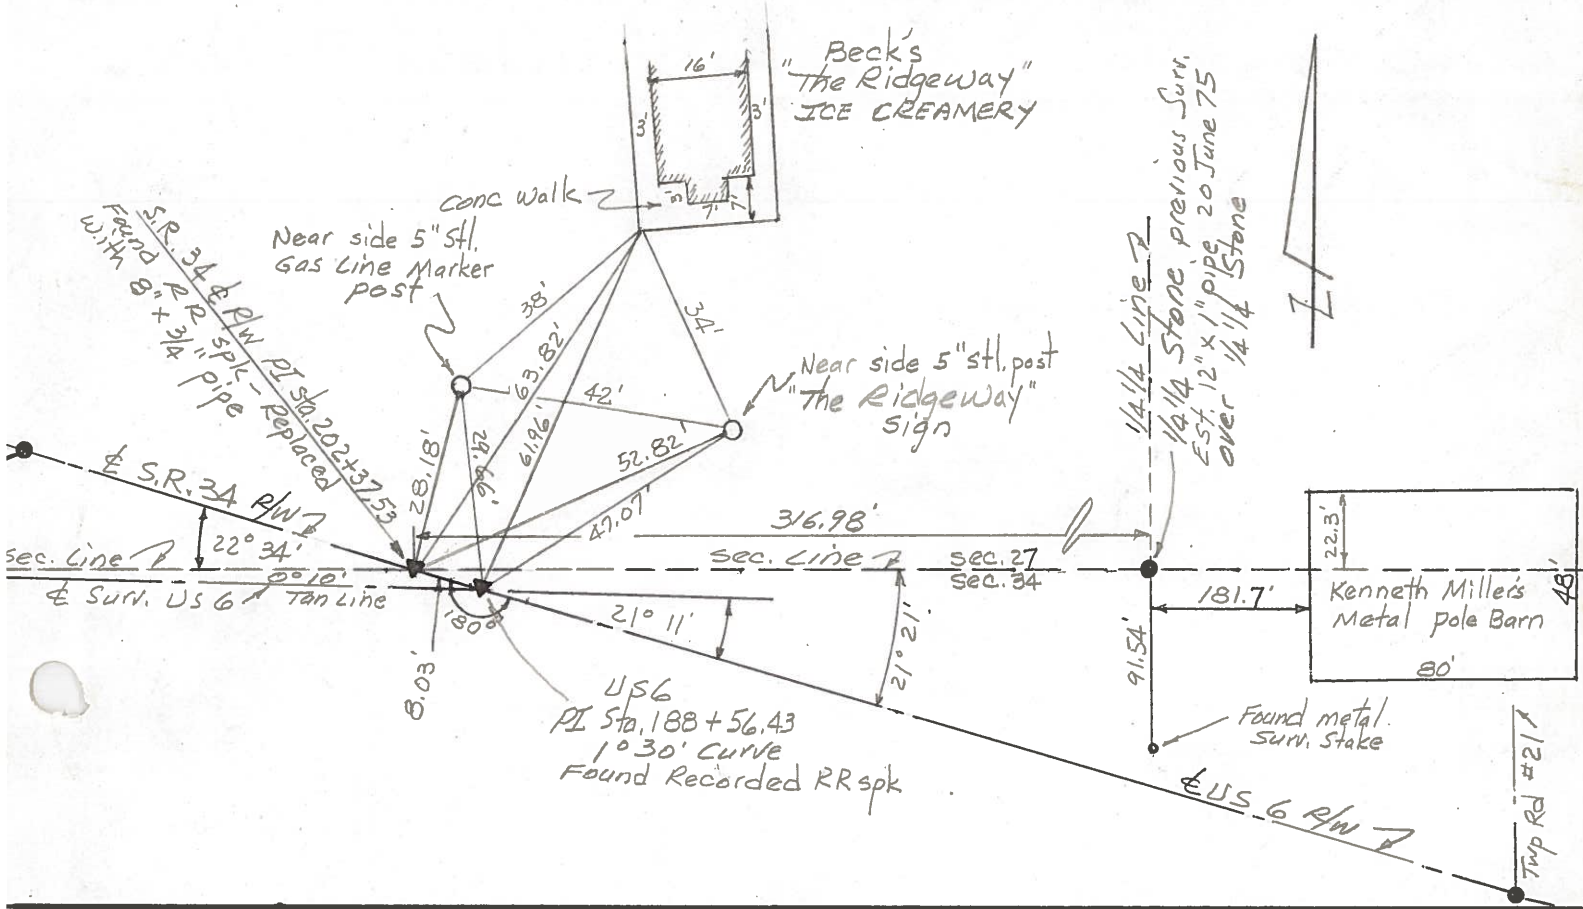 Beck's
"The Ridgeway"
ICE CREAMERY
16'
3'
3'
5'
7'
7'
conc walk
Near side 5" Stl.
Gas Line Marker
post
S.R. 34 ℄ R/W PI sta. 202+37.53
Found RR spk – Replaced
with 8" x 3/4" pipe
38'
63.82'
61.96'
34'
42'
28.18'
29.66'
52.82'
47.07'
Near side 5" stl. post
"The Ridgeway"
Sign
1/4 1/4 Line
1/4 1/4 Stone previous Surv.
Est. 12" x 1" pipe 20 June 75
over 1/4 1/4 Stone
Z
℄ S.R. 34 R/W
22° 34'
316.98'
sec. Line
sec. Line
sec. 27
sec. 34
0° 10'
℄ Surv. US 6
Tan Line
180°
8.03'
21° 11'
21° 21'
US 6
PI Sta. 188 + 56.43
1° 30' Curve
Found Recorded RR spk
181.7'
91.54'
22.3'
Kenneth Miller's
Metal pole Barn
48'
80'
Found metal
Surv. Stake
℄ US 6 R/W
Twp Rd #21